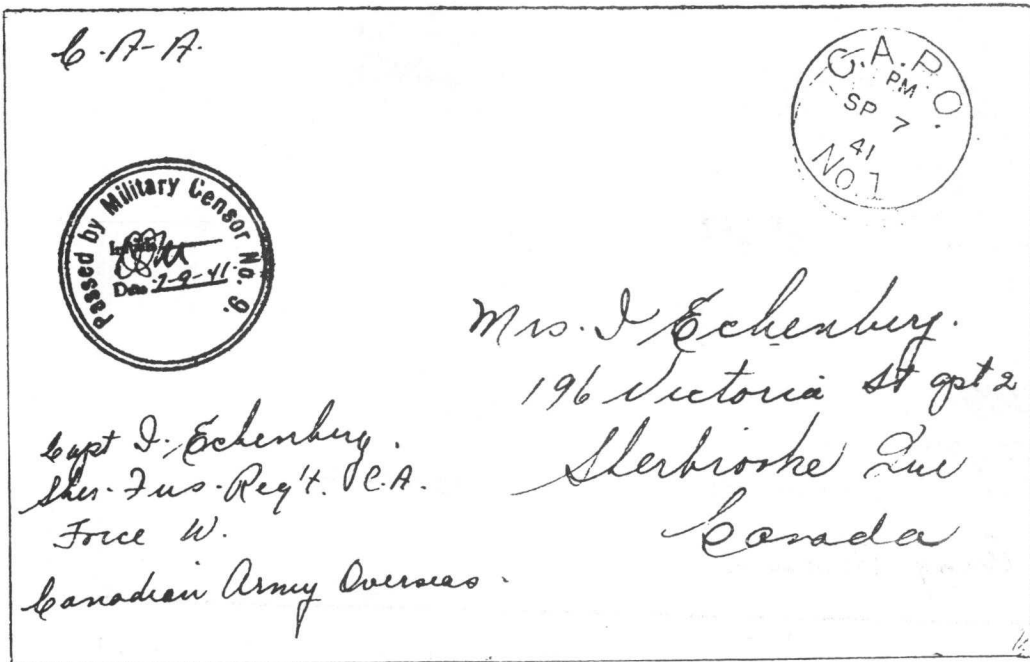 C.A-A.
C.A.P.O.
PM
SP 7
41
NO.1
Passed by Military Censor No. 9.
Date 7-9-41.
Mrs. I Echenberg.
196 Victoria St apt 2
Sherbrooke Que
Canada
Capt I. Echenberg.
Sher. Fus. Reg't. C.A.
Force W.
Canadian Army Overseas.